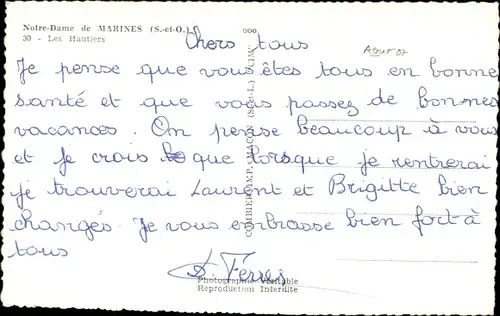 Notre-Dame de MARINES (S.-et-O.)
30 - Les Hautiers
Chers tous
Je pense que vous êtes tous en bonne
santé et que vous passez de bonnes
vacances. On pense beaucoup à vous
et je crois que lorsque je rentrerai
je trouverai Laurent et Brigitte bien
changés. Je vous embrasse bien fort à
tous
Photographie Véritable
Reproduction Interdite